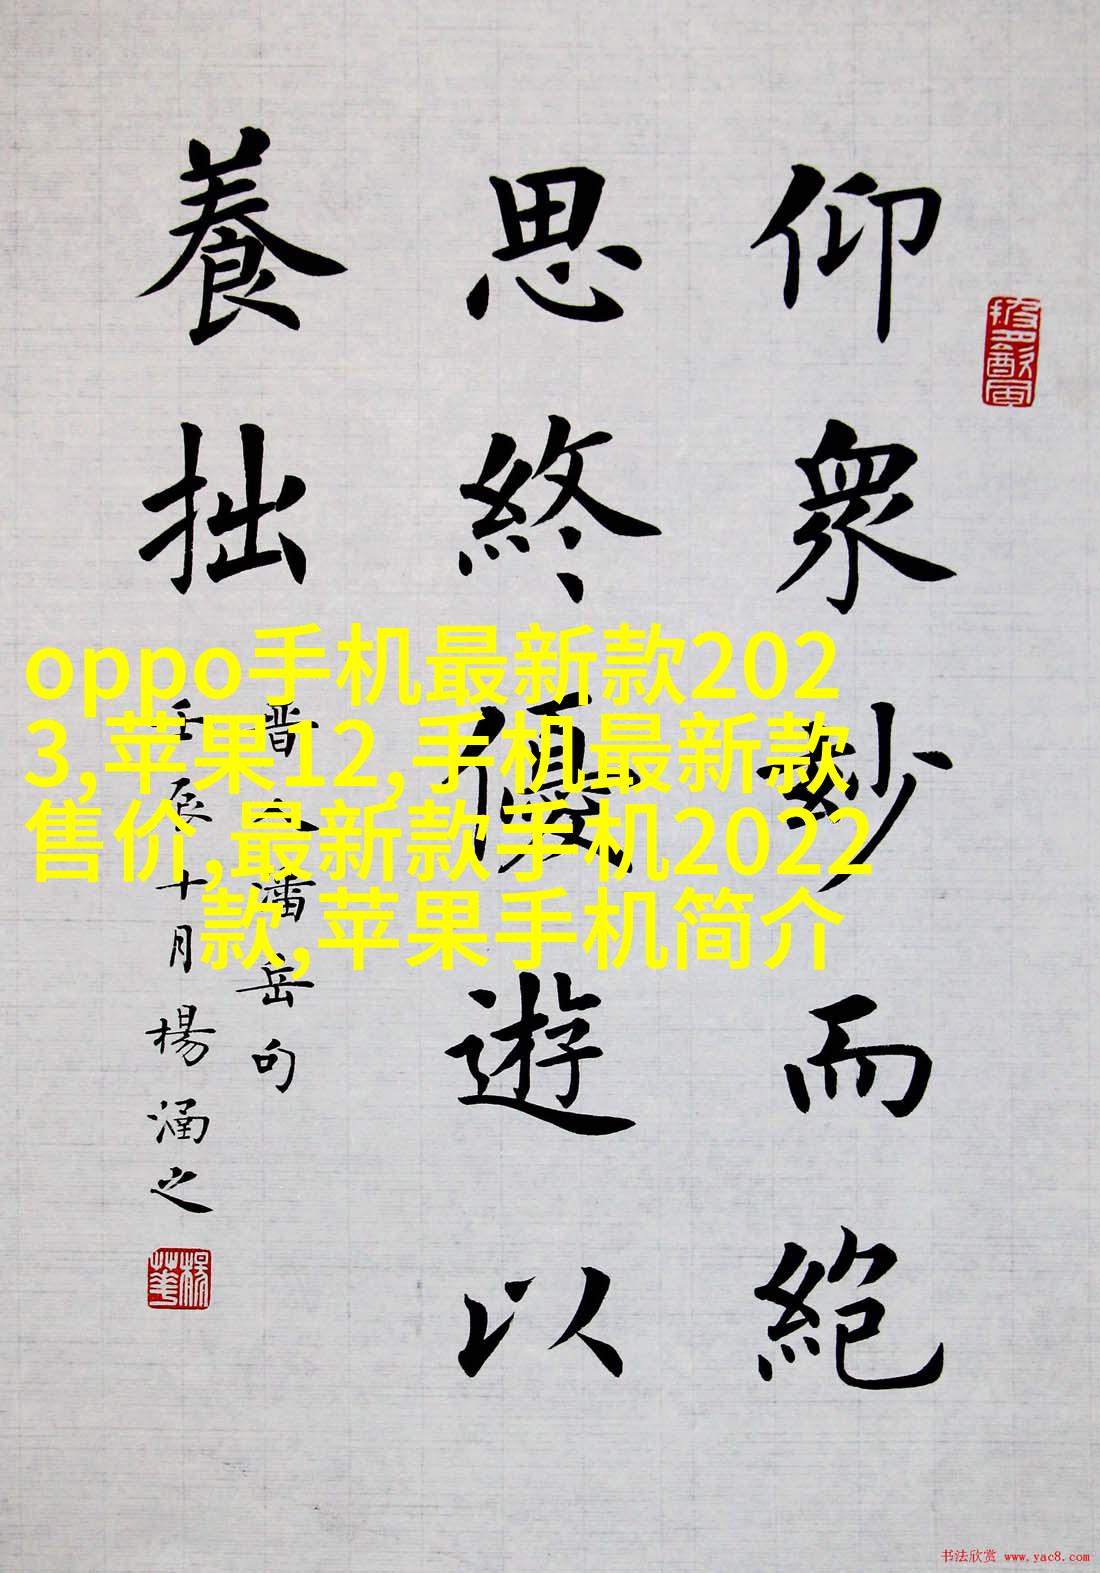 仰衆妙而絶
思終優遊以
養拙
晋人潘岳句
壬辰十月楊涵之
oppo手机最新款202
3,苹果12,手机最新款
售价,最新款手机2022
款,苹果手机简介
楊華
书法欣赏 www.yac8.com